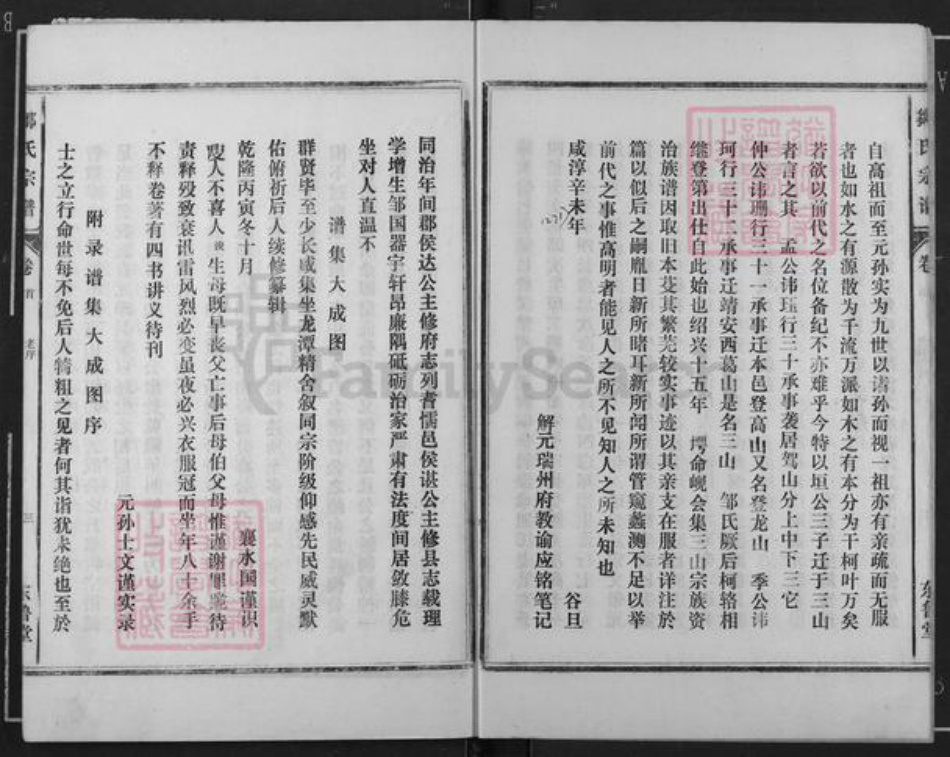 自高祖而至元孙实为九世以诸孙而视一祖亦有亲疏而无服
者也如水之有源散为千流万派如木之有本分为干柯叶万矣
若欲以前代之名位备纪不亦难乎今特以垣公三子迁于三山
者言之其 孟公讳珏行三十承事袭居驾山分上中下三它
仲公讳珊行三十一承事迁本邑登高山又名登龙山 季公讳
珂行三十二承事迁靖安西葛山是名三山 邹氏厥后柯辂相
继登第出仕自此始也绍兴十五年 㙺命岘会集三山宗族资
治族谱因取旧本芟其繁芜较实事迹以其亲支在服者详注於
篇以似后之嗣胤日新所睹耳新所闻所谓管窥蠡测不足以举
前代之事惟高明者能见人之所不见知人之所未知也
咸淳辛未年 谷旦
1271
解元瑞州府教谕应铭笔记
邹氏宗谱 卷首 老序 三 东鲁堂
同治年间郡侯达公主修府志列耆儒邑侯谌公主修县志载理
学增生邹国器字轩昂廉隅砥砺治家严肃有法度间居敛膝危
坐对人直温不
谱集大成图
群贤毕至少长咸集坐龙潭精舍叙同宗阶级仰感先民威灵默
佑俯祈后人续修纂辑
乾隆丙寅冬十月 襄水国谨识
叟人不喜人 生母既早丧父亡事后母伯父母惟谨谢 待
责释殁致衰讯雷风烈必变虽夜必兴衣服冠而坐年八十余手
不释卷著有四书讲义待刊
元孙士文谨实录
附录谱集大成图序
士之立行命世每不免后人特粗之见者何其诣犹未绝也至於
FamilySearch